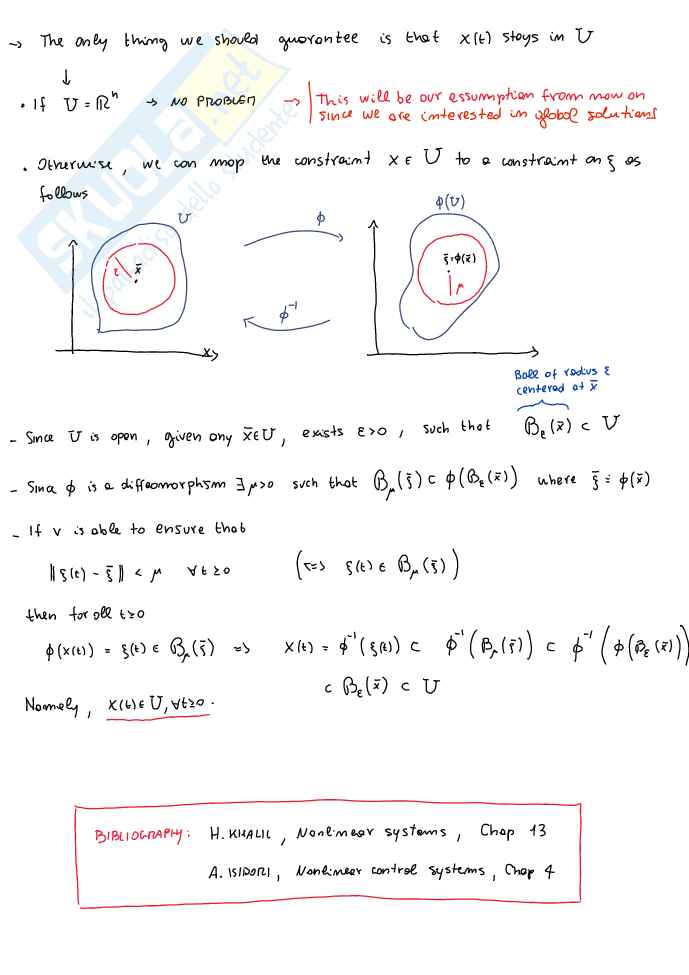 → The only thing we should guarantee is that x(t) stays in U
↓
• If U = ℝⁿ → NO PROBLEM → This will be our assumption from now on
since we are interested in global solutions
• Otherwise, we can map the constraint x ∈ U to a constraint on ξ as
follows
U
ϕ
ϕ(U)
ε
x̄
ξ̄ = ϕ(x̄)
μ
ϕ⁻¹
x
Ball of radius ε
centered at x̄
- Since U is open, given any x̄ ∈ U, exists ε>0, such that B_ε(x̄) ⊂ U
- Since ϕ is a diffeomorphism ∃ μ>0 such that B_μ(ξ̄) ⊂ ϕ(B_ε(x̄)) where ξ̄ = ϕ(x̄)
- If v is able to ensure that
‖ξ(t) - ξ̄‖ < μ ∀t≥0 (⇔ ξ(t) ∈ B_μ(ξ̄))
then for all t≥0
ϕ(x(t)) = ξ(t) ∈ B_μ(ξ̄) ⇒ x(t) = ϕ⁻¹(ξ(t)) ⊂ ϕ⁻¹(B_μ(ξ̄)) ⊂ ϕ⁻¹(ϕ(B_ε(x̄)))
⊂ B_ε(x̄) ⊂ U
Namely, x(t) ∈ U, ∀t≥0.
BIBLIOGRAPHY: H. KHALIL, Nonlinear systems, Chap 13
A. ISIDORI, Nonlinear control systems, Chap 4
SKUOLA.net